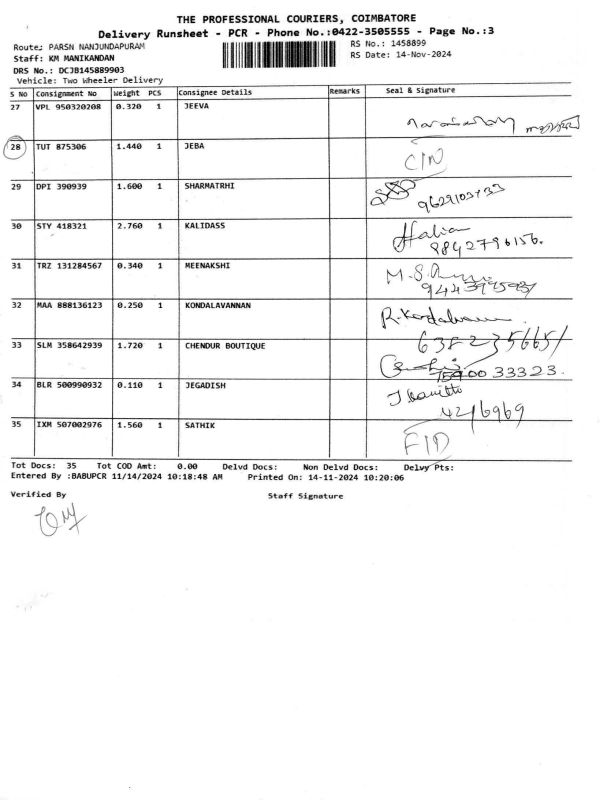 THE PROFESSIONAL COURIERS, COIMBATORE
Delivery Runsheet - PCR - Phone No.:0422-3505555 - Page No.:3
Route: PARSN NANJUNDAPURAM
RS No.: 1458899
Staff: KM MANIKANDAN
RS Date: 14-Nov-2024
DRS No.: DCJB145889903
Vehicle: Two Wheeler Delivery
S No Consignment No Weight PCS Consignee Details Remarks Seal & Signature
27 VPL 950320208 0.320 1 JEEVA
28 TUT 875306 1.440 1 JEBA
CIN
29 DPI 390939 1.600 1 SHARMATRHI
30 STY 418321 2.760 1 KALIDASS
9842796156.
31 TRZ 131284567 0.340 1 MEENAKSHI
32 MAA 888136123 0.250 1 KONDALAVANNAN
33 SLM 358642939 1.720 1 CHENDUR BOUTIQUE
34 BLR 500990932 0.110 1 JEGADISH
35 IXM 507002976 1.560 1 SATHIK
Tot Docs: 35 Tot COD Amt: 0.00 Delvd Docs: Non Delvd Docs: Delvy Pts:
Entered By :BABUPCR 11/14/2024 10:18:48 AM Printed On: 14-11-2024 10:20:06
Verified By Staff Signature